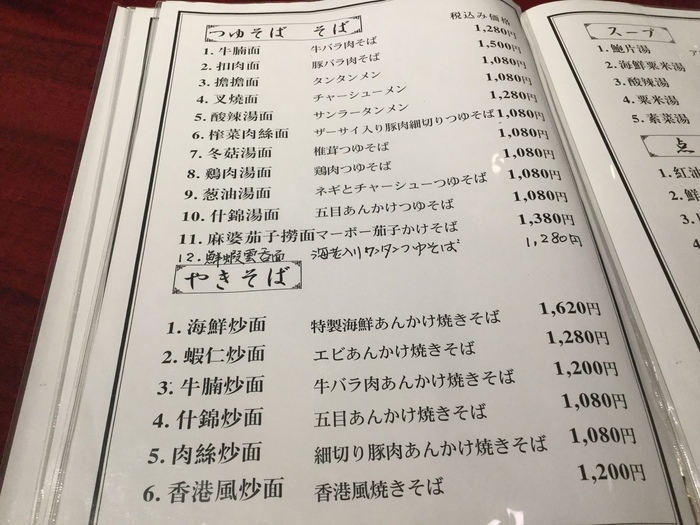 つゆそば そば
税込み価格
1. 牛腩面 牛バラ肉そば 1,280円
2. 扣肉面 豚バラ肉そば 1,500円
3. 擔擔面 タンタンメン 1,080円
4. 叉燒面 チャーシューメン 1,080円
5. 酸辣湯面 サンラータンメン 1,280円
6. 榨菜肉絲面 ザーサイ入り豚肉細切りつゆそば 1,080円
7. 冬菇湯面 椎茸つゆそば 1,080円
8. 鷄肉湯面 鶏肉つゆそば 1,080円
9. 葱油湯面 ネギとチャーシューつゆそば 1,080円
10. 什錦湯面 五目あんかけつゆそば 1,080円
11. 麻婆茄子撈面 マーボー茄子かけそば 1,380円
12. 鮮蝦雲呑面 海老入りワンタンつゆそば 1,280円
やきそば
1. 海鮮炒面 特製海鮮あんかけ焼きそば 1,620円
2. 蝦仁炒面 エビあんかけ焼きそば 1,280円
3. 牛腩炒面 牛バラ肉あんかけ焼きそば 1,200円
4. 什錦炒面 五目あんかけ焼きそば 1,080円
5. 肉絲炒面 細切り豚肉あんかけ焼きそば 1,080円
6. 香港風炒面 香港風焼きそば 1,200円
スープ
1. 鮑片湯
2. 海鮮粟米湯
3. 酸辣湯
4. 粟米湯
5. 素菜湯
点
1. 紅油
2. 鮮
3.